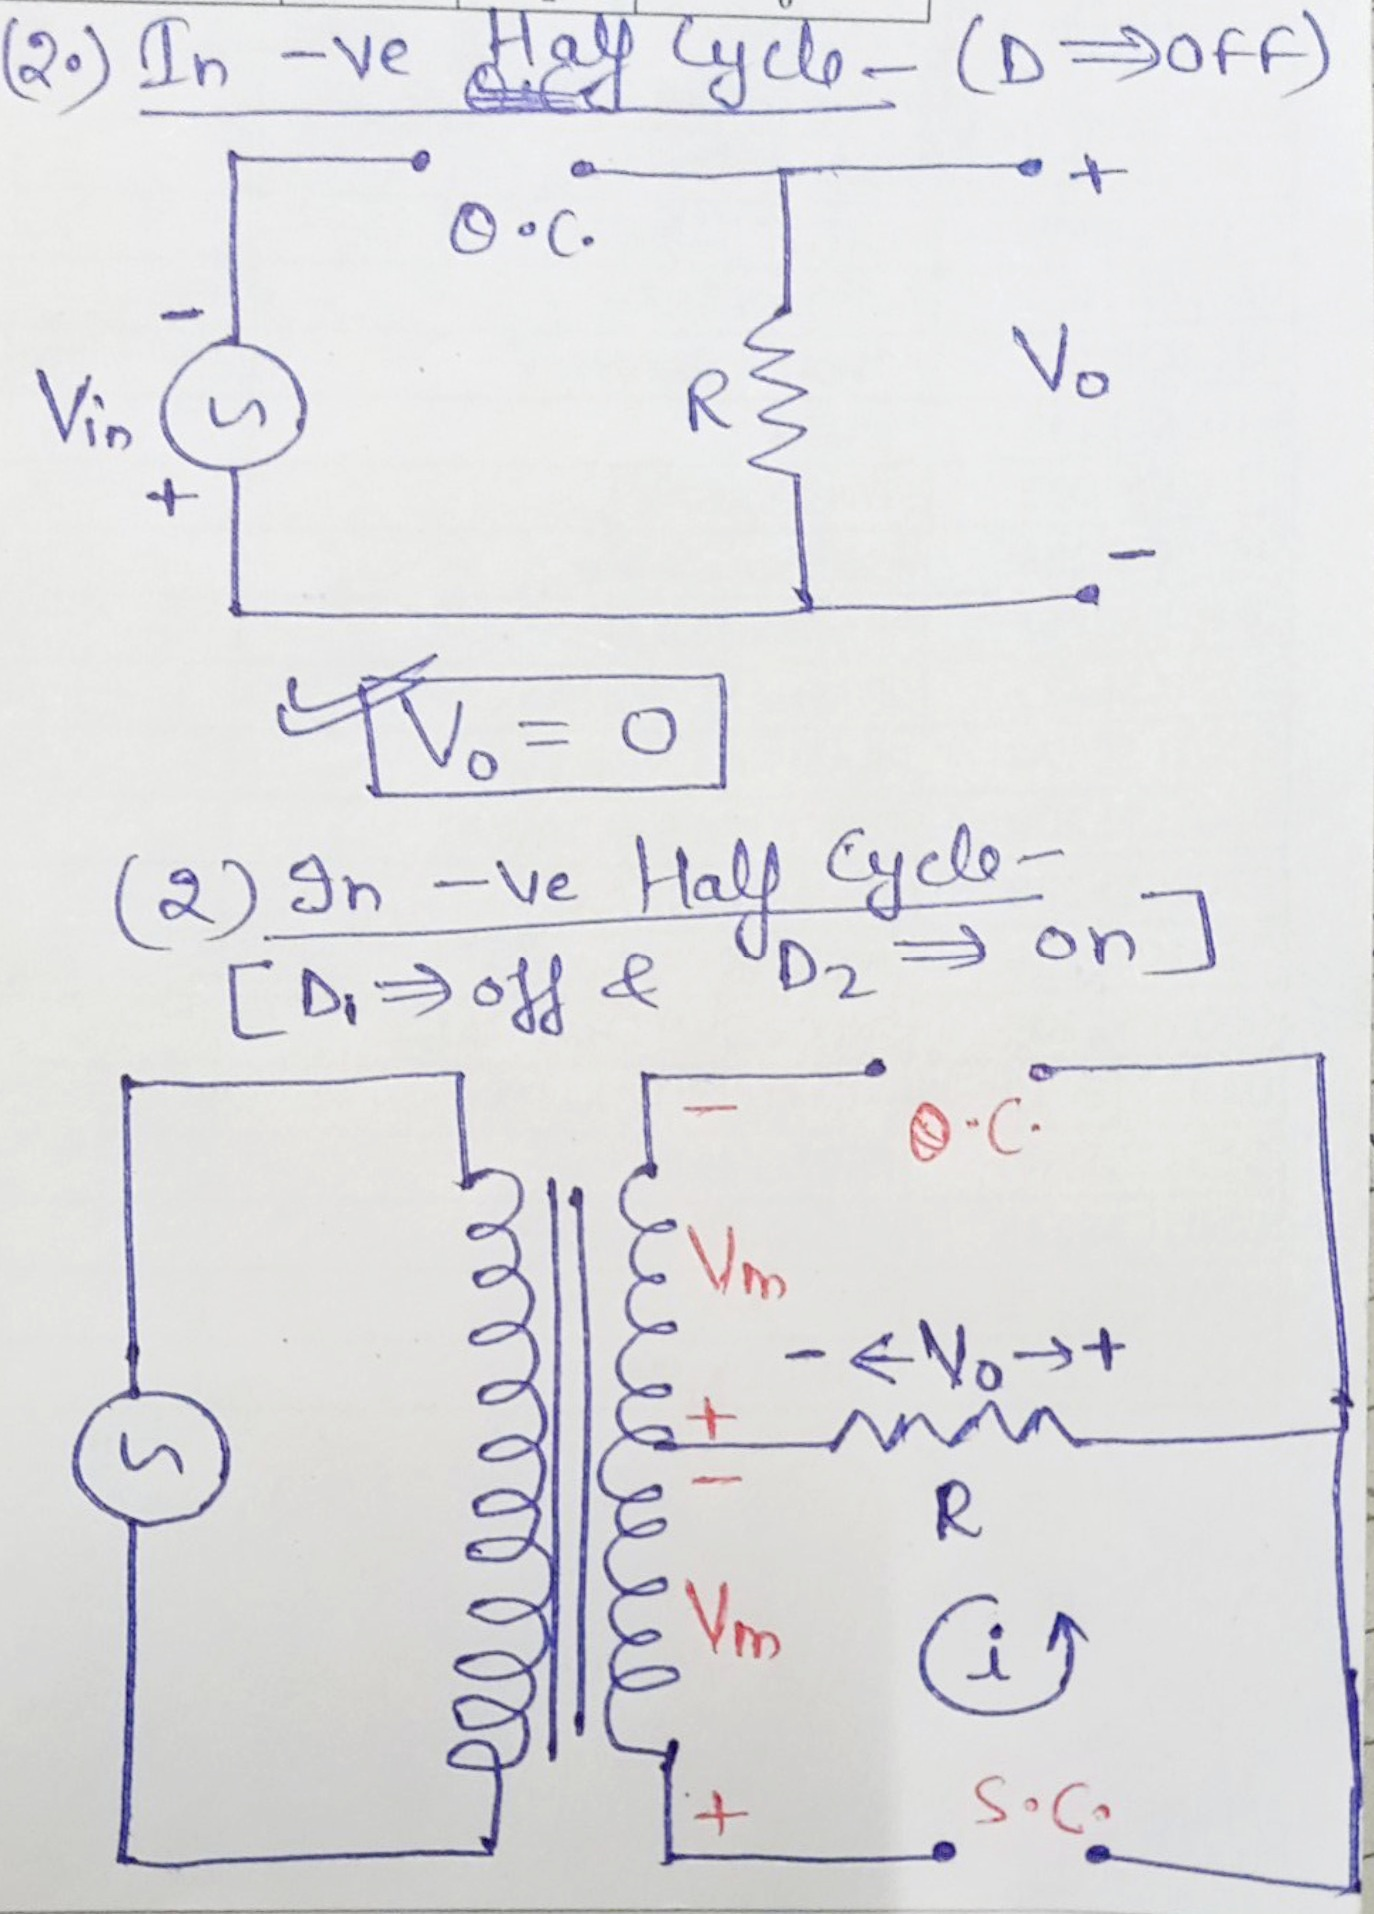 (2.) In -ve Half Cycle - (D ⇒ OFF)
O.C.
+
-
Vin
+
R
Vo
-
Vo = 0
(2) In -ve Half Cycle -
[D1 ⇒ off & D2 ⇒ on]
-
O.C.
Vm
- ← Vo → +
+
-
R
Vm
i
+
S.C.